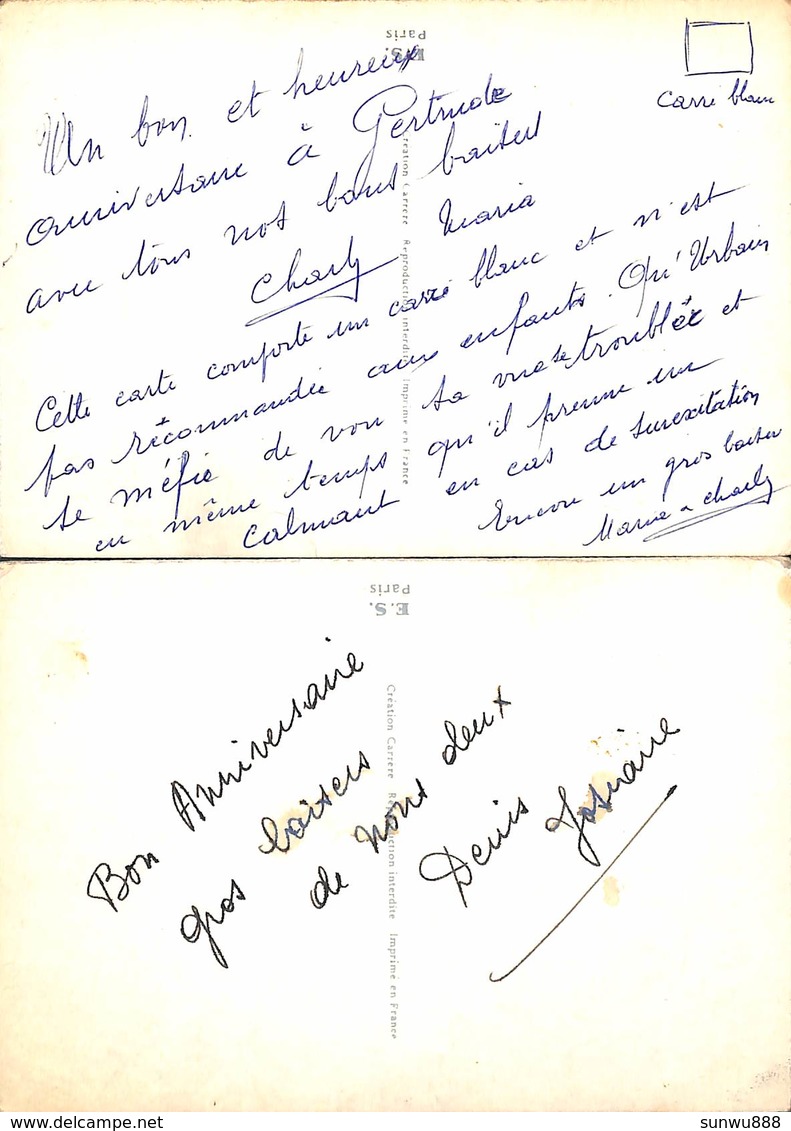 E.S.
Paris
carré blanc
Un bon et heureux
anniversaire à Gertrude
avec tous nos bons baisers
Charly Maria
Cette carte comporte un carré blanc et n'est
pas récommandée aux enfants. Qu'Urbain
se méfie de voir sa vue se troublée et
en même temps qu'il prenne un
calmant en cas de surexitation
Encore un gros baiser
Maria Charly
Création Carrere Reproduction interdite Imprimé en France
E.S.
Paris
Bon Anniversaire
gros baisers
de nous deux
Denis Josiane
Création Carrere Reproduction interdite Imprimé en France
sunwu888